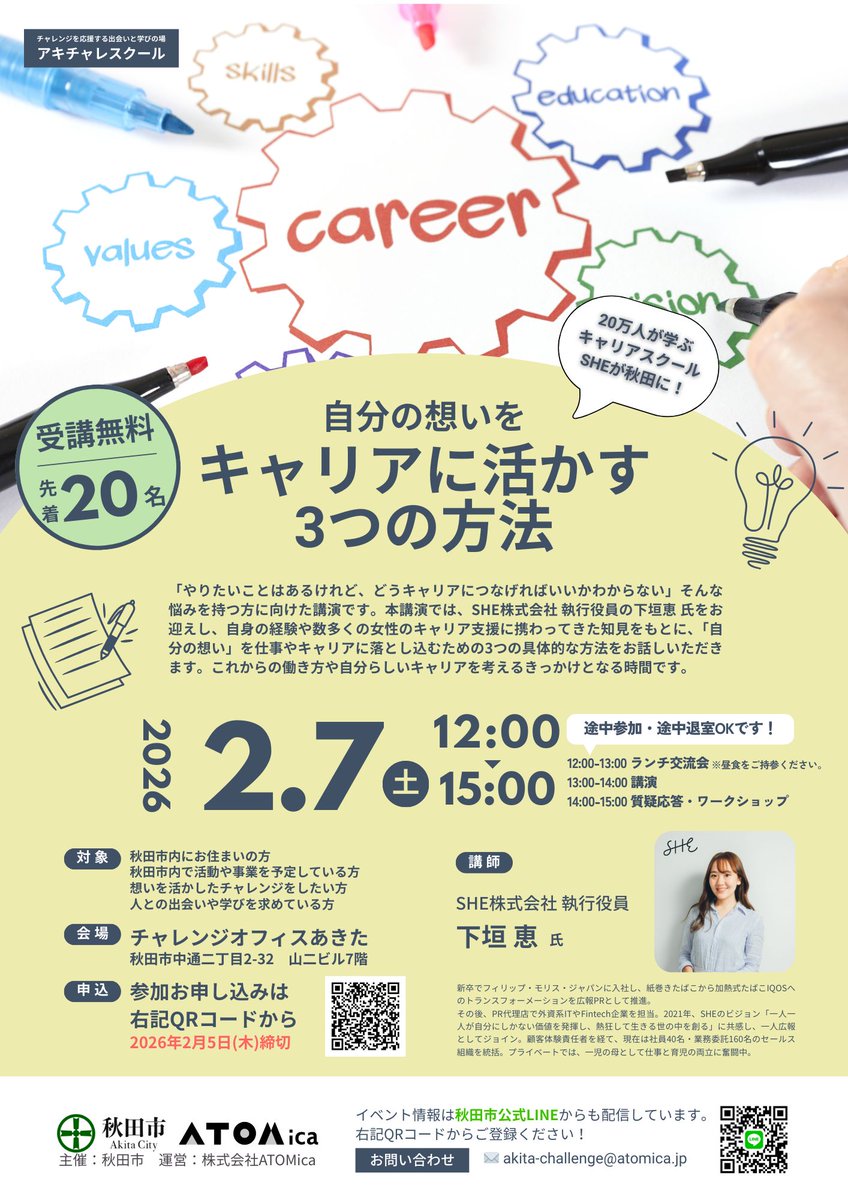 チャレンジを応援する出会いと学びの場
アキチャレスクール
skills
education
career
values
vision
20万人が学ぶ
キャリアスクール
SHEが秋田に！
受講無料
先着20名
自分の想いを
キャリアに活かす
3つの方法
「やりたいことはあるけれど、どうキャリアにつなげればいいかわからない」そんな
悩みを持つ方に向けた講演です。本講演では、SHE株式会社 執行役員の下垣恵 氏をお
迎えし、自身の経験や数多くの女性のキャリア支援に携わってきた知見をもとに、「自
分の想い」を仕事やキャリアに落とし込むための3つの具体的な方法をお話しいただき
ます。これからの働き方や自分らしいキャリアを考えるきっかけとなる時間です。
2026
2.7 土
12:00
15:00
途中参加・途中退室OKです！
12:00-13:00 ランチ交流会 ※昼食をご持参ください。
13:00-14:00 講演
14:00-15:00 質疑応答・ワークショップ
対象
秋田市内にお住まいの方
秋田市内で活動や事業を予定している方
想いを活かしたチャレンジをしたい方
人との出会いや学びを求めている方
会場
チャレンジオフィスあきた
秋田市中通二丁目2-32 山二ビル7階
申込
参加お申し込みは
右記QRコードから
2026年2月5日(木)締切
講師
SHE
SHE株式会社 執行役員
下垣 恵 氏
新卒でフィリップ・モリス・ジャパンに入社し、紙巻きたばこから加熱式たばこIQOSへ
のトランスフォーメーションを広報PRとして推進。
その後、PR代理店で外資系ITやFintech企業を担当。2021年、SHEのビジョン「一人一
人が自分にしかない価値を発揮し、熱狂して生きる世の中を創る」に共感し、一人広報
としてジョイン。顧客体験責任者を経て、現在は社員40名・業務委託160名のセールス
組織を統括。プライベートでは、一児の母として仕事と育児の両立に奮闘中。
秋田市
Akita City
ATOMica
主催：秋田市 運営：株式会社ATOMica
イベント情報は秋田市公式LINEからも配信しています。
右記QRコードからご登録ください！
お問い合わせ
akita-challenge@atomica.jp
LINE